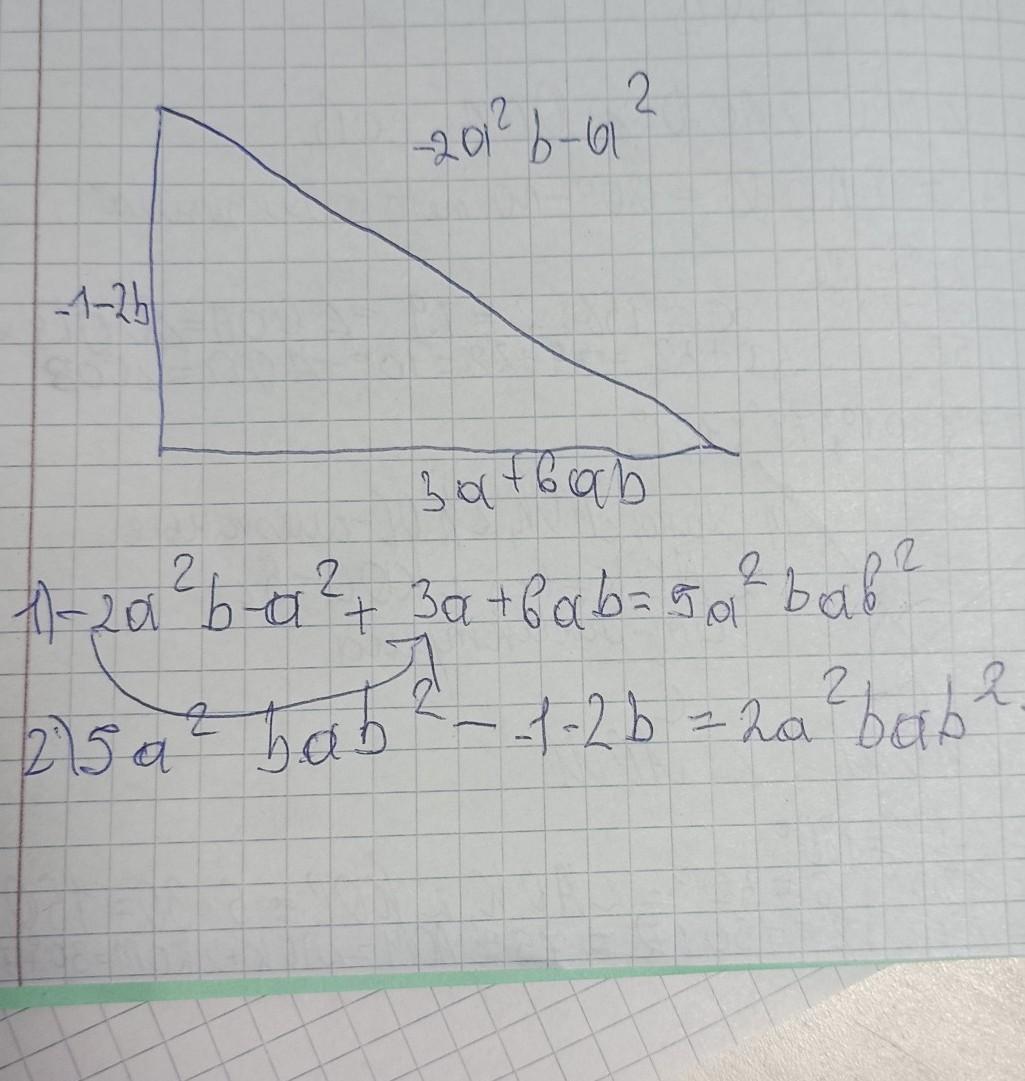 -2a² b-a²
-1-2b
3a+6ab
1)-2a²b-a²+ 3a+6ab=5a²bab²
2)5a² bab² - -1-2b =2a²bab².